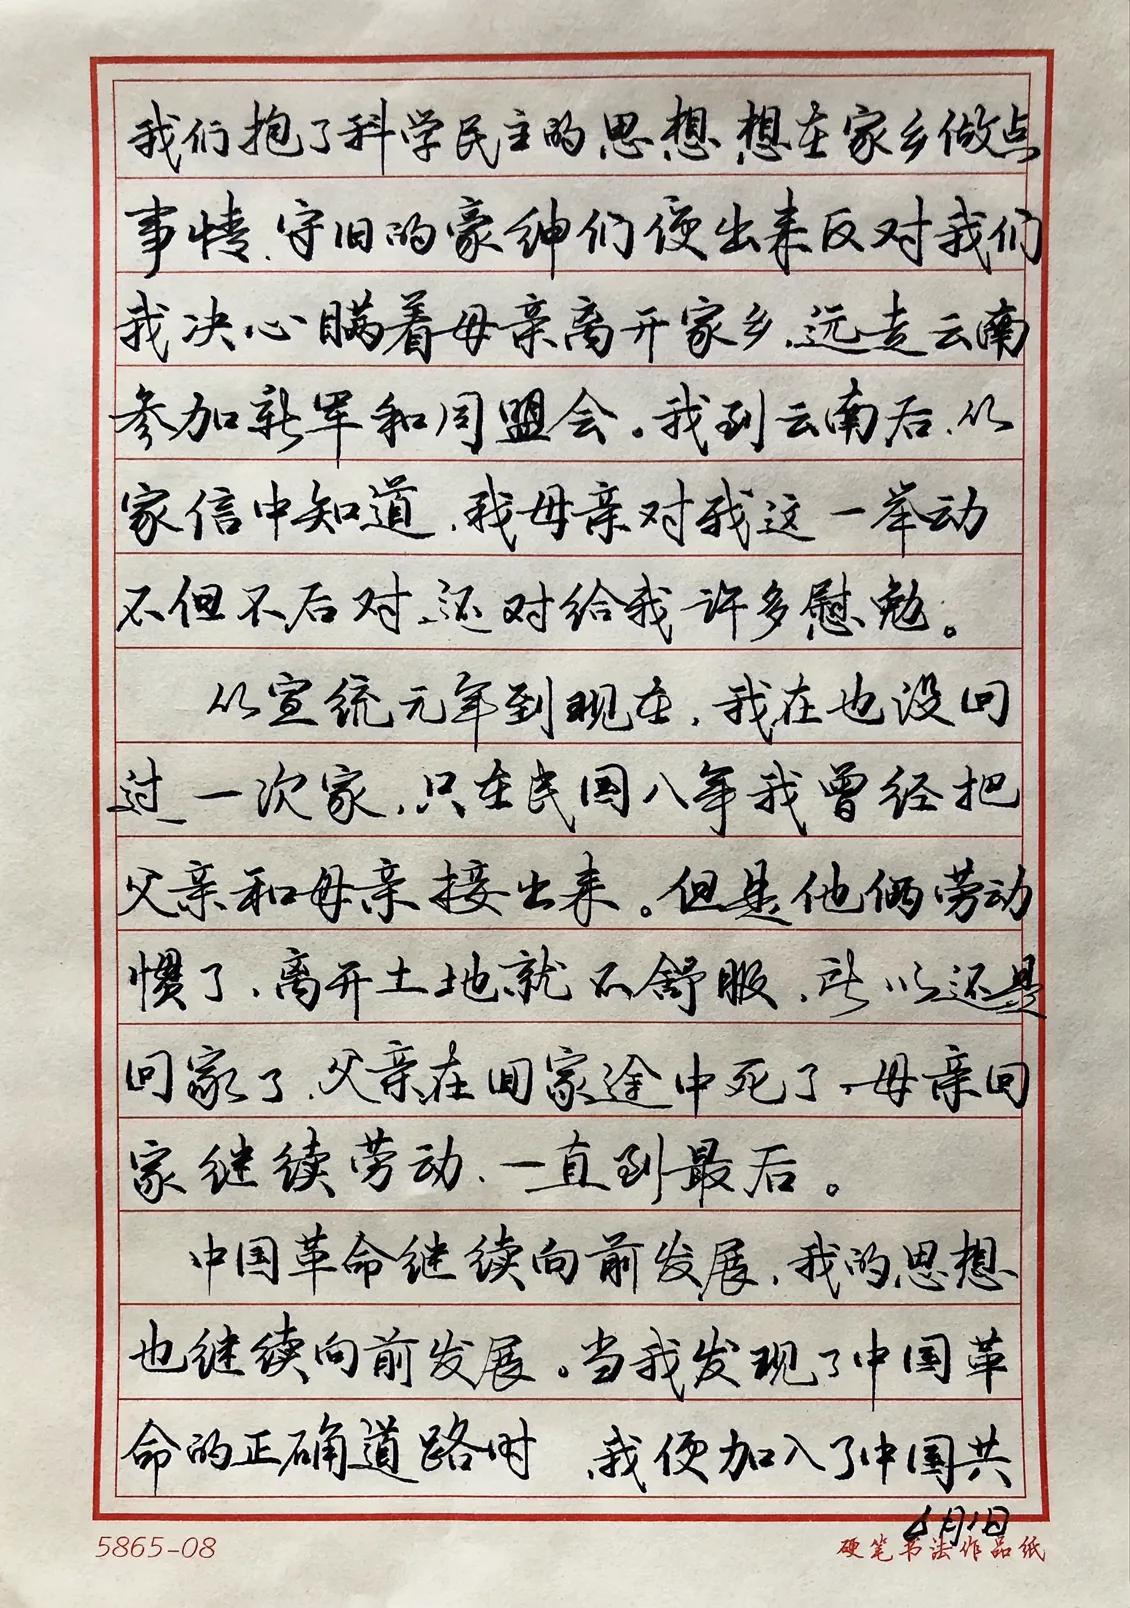 我们抱了科学民主的思想想在家乡做点
事情、守旧的豪绅们便出来反对我们
我决心瞒着母亲离开家乡,远走云南
参加新军和同盟会。我到云南后,从
家信中知道,我母亲对我这一举动
不但不后对,还对给我许多慰勉。
从宣统元年到现在,我在也没回
过一次家,只在民国八年我曾经把
父亲和母亲接出来。但是他俩劳动
惯了,离开土地就不舒服,所以还是
回家了,父亲在回家途中死了,母亲回
家继续劳动、一直到最后。
中国革命继续向前发展,我的思想
也继续向前发展。当我发现了中国革
命的正确道路时 我便加入了中国共
月1日
5865-08
硬笔书法作品纸